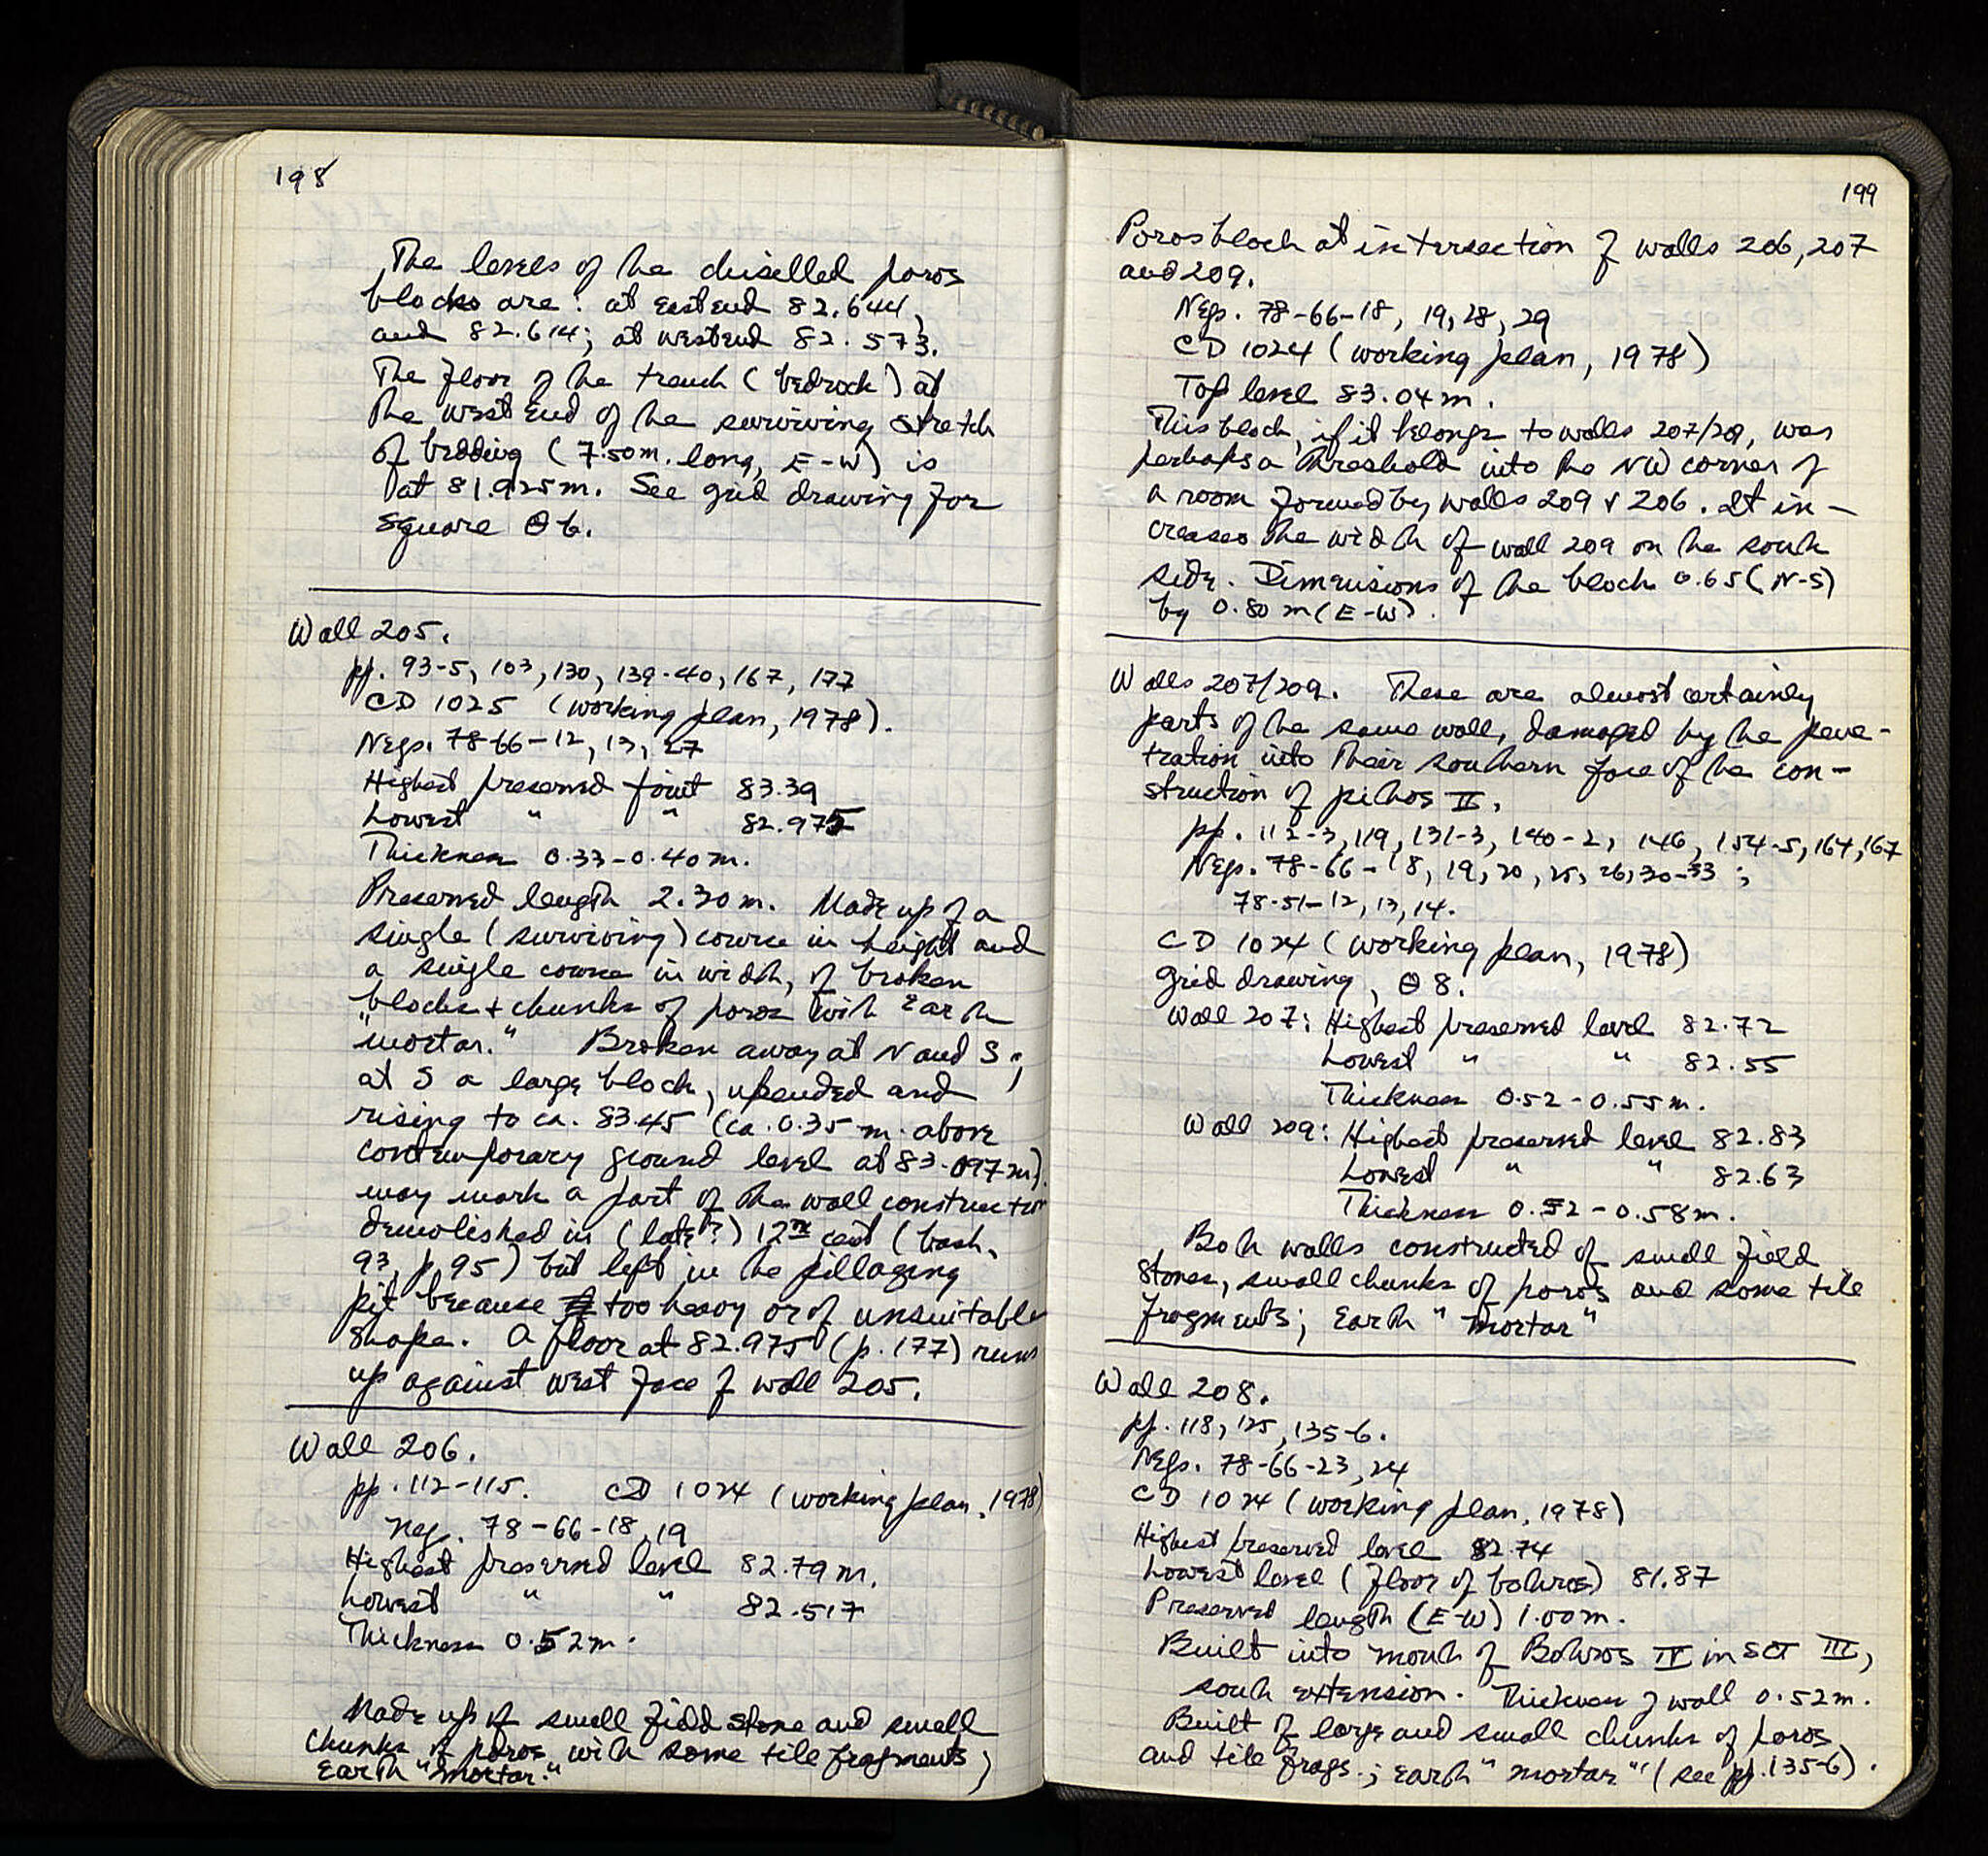 198
The levels of the chiselled poros
blocks are: at east end 82.644,
and 82.614; at west end 82.573.
The floor of the trench (bedrock) at
the west end of the surviving stretch
of bedding (7.50m. long, E-W) is
at 81.925m. See grid drawing for
square Θ6.
Wall 205.
pp. 93-5, 103, 130, 139-40, 167, 177
CD 1025 (working plan, 1978).
Negs. 78-66-12, 13, 27
Highest preserved point 83.39
Lowest " " 82.975
Thickness 0.33-0.40m.
Preserved length 2.30m. Made up of a
single (surviving) course in height and
a single course in width, of broken
blocks + chunks of poros with earth
"mortar." Broken away at N and S;
at S a large block, upended and
rising to ca. 83.45 (ca. 0.35 m. above
contemporary ground level at 83.097m).
may mark a part of the wall construction
demolished in (late?) 12th cent (bask.
93, p. 95) but left in the pillaging
pit because too heavy or of unsuitable
shape. A floor at 82.975 (p. 177) runs
up against west face of wall 205.
Wall 206.
pp. 112-115. CD 1024 (working plan, 1978)
Neg. 78-66-18, 19
Highest preserved level 82.79m.
Lowest " " 82.517
Thickness 0.52m.
Made up of small field stone and small
chunks of poros with some tile fragments;
Earth "mortar."
199
Poros block at intersection of walls 206, 207
and 209.
Negs. 78-66-18, 19, 28, 29
CD 1024 (working plan, 1978)
Top level 83.04m.
This block, if it belongs to walls 207/209, was
perhaps a threshold into the NW corner of
a room formed by walls 209 & 206. It in-
creases the width of wall 209 on the south
side. Dimensions of the block 0.65 (N-S)
by 0.80 m (E-W).
Walls 207/209. These are almost certainly
parts of the same wall, damaged by the pene-
tration into their southern face of the con-
struction of pithos II.
pp. 112-3, 119, 131-3, 140-2, 146, 154-5, 164, 167
Negs. 78-66-18, 19, 20, 25, 26, 30-33;
78-51-12, 13, 14.
CD 1024 (working plan, 1978)
Grid drawing, Θ8.
Wall 207: Highest preserved level 82.72
Lowest " " 82.55
Thickness 0.52-0.55m.
Wall 209: Highest preserved level 82.83
Lowest " " 82.63
Thickness 0.52-0.58m.
Both walls constructed of small field
stones, small chunks of poros and some tile
fragments; Earth "mortar"
Wall 208.
pp. 118, 125, 135-6.
Negs. 78-66-23, 24
CD 1024 (working plan, 1978)
Highest preserved level 82.74
Lowest level (floor of bothros) 81.87
Preserved length (E-W) 1.00m.
Built into mouth of Bothros IV in sct III,
south extension. Thickness of wall 0.52m.
Built of large and small chunks of poros
and tile frags.; earth "mortar" (see pp. 135-6).